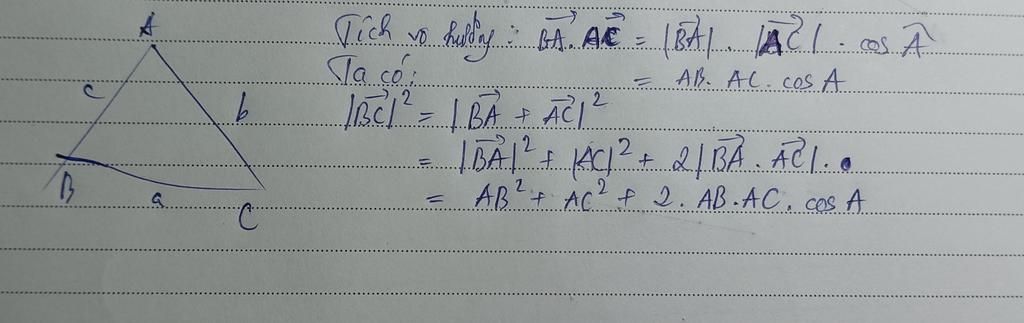 A
c
b
B
a
C
Tích vô hướng : BA⃗. AC⃗ = |BA⃗| . |AC⃗| . cos Â
= AB. AC. cos A
Ta có:
|BC⃗|² = |BA⃗ + AC⃗|²
= |BA⃗|² + |AC⃗|² + 2|BA⃗ . AC⃗| .
= AB² + AC² + 2. AB.AC. cos A